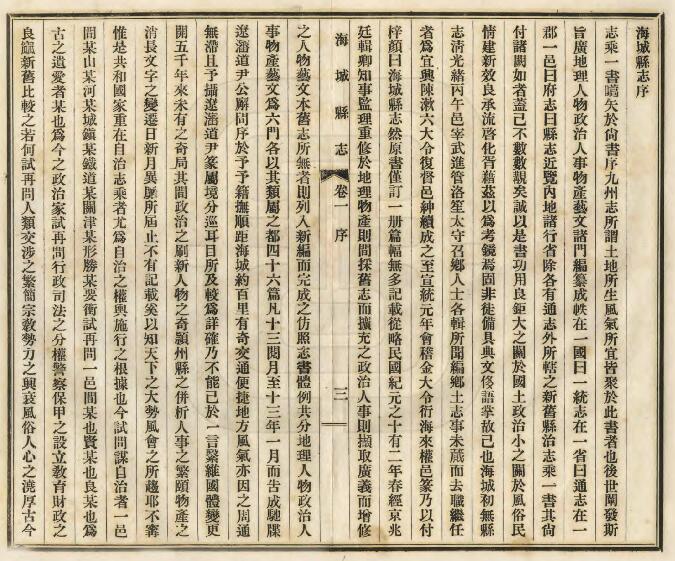 海城縣志序
志乘一書嚆矢於尙書序九州志所謂土地所生風氣所宜皆聚於此書者也後世闡發斯
旨廣地理人物政治人事物產藝文諸門編纂成帙在一國曰一統志在一省曰通志在一
郡一邑曰府志曰縣志近覽內地諸行省除各有通志外所轄之新舊縣治志乘一書其尙
付諸闕如者蓋已不數數覯矣誠以是書功用良鉅大之關於國土政治小之關於風俗民
情建新效良承流啓化胥藉茲以爲考鏡焉固非徒備具典文侈語掌故已也海城初無縣
志淸光緖丙午邑宰武進管洛笙太守召鄕人士各輯所聞編鄕土志事未蕆而去職繼任
者爲宜興陳漱六大令復督邑紳續成之至宣統元年會稽金大令衍海來權邑篆乃以付
梓顏曰海城縣志然原書僅訂一册篇幅無多記載從略民國紀元之十有二年春經京兆
廷輯卿知事監理重修於地理物產則間採舊志而擴充之政治人事則擷取廣義而增修
之人物藝文本舊志所無者則列入新編而完成之仿照志書體例共分地理人物政治人
事物產藝文爲六門各以其類屬之都四十六篇凡十三閱月至十三年一月而告成馳牒
遼瀋道尹公廨問序於予予籍撫順距海城約百里有奇交通便捷地方風氣亦因之周通
無滯且予攝遼瀋道尹篆屬境分巡耳目所及較爲詳確乃不能已於一言緊維國體變更
開五千年來未有之奇局其間政治之刷新人物之奇穎州縣之併析人事之繁頤物產之
消長文字之變遷日新月異靡所屆止不有記載奚以知天下之大勢風會之所趨耶不寗
惟是共和國家重在自治志乘者尤爲自治之權輿施行之根據也今試問謀自治者一邑
間某山某河某城鎭某鐵道某關津某形勝某要衝試再問一邑間某也賢某也良某也爲
古之遺愛者某也爲今之政治家試再問行政司法之分權警察保甲之設立敎育財政之
良窳新舊比較之若何試再問人類交涉之繁簡宗敎勢力之興衰風俗人心之澆厚古今
海城縣志
卷一 序
三